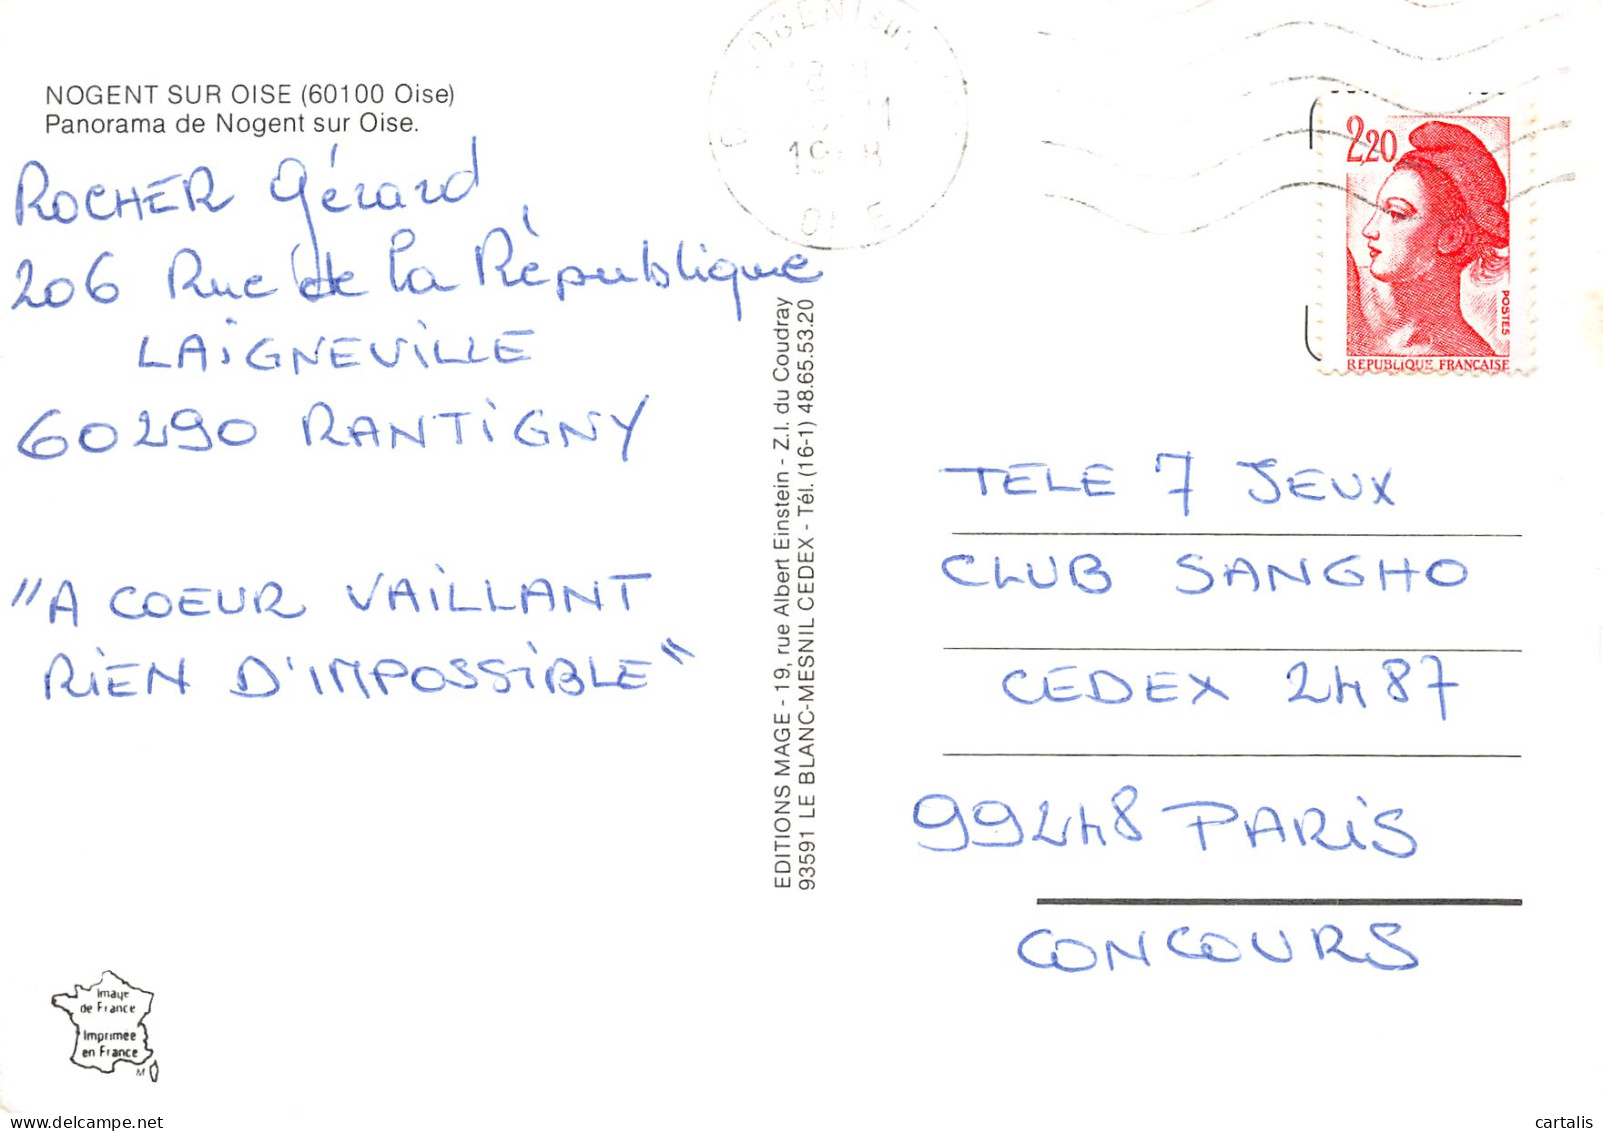 NOGENT SUR OISE (60100 Oise)
Panorama de Nogent sur Oise.
ROCHER Gérard
206 Rue de la République
LAIGNEVILLE
60290 RANTIGNY
"A COEUR VAILLANT
RIEN D'IMPOSSIBLE"
Image
de France
Imprimée
en France
M
EDITIONS MAGE - 19, rue Albert Einstein - Z.I. du Coudray
93591 LE BLANC-MESNIL CEDEX - Tél. (16-1) 48.65.53.20
OGENT SUR
OISE
2,20
POSTES
REPUBLIQUE FRANÇAISE
TELE 7 JEUX
CLUB SANGHO
CEDEX 2487
99248 PARIS
CONCOURS
delcampe.net
cartalis